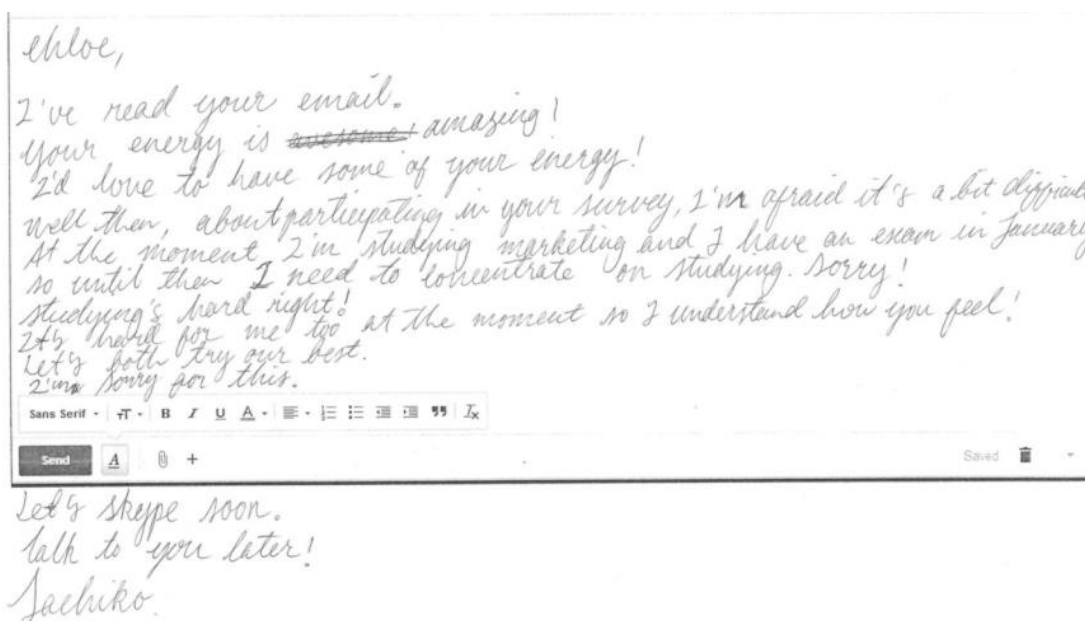 Chloe,
I've read your email.
Your energy is awesome! amazing!
I'd love to have some of your energy!
well then, about participating in your survey, I'm afraid it's a bit difficult
At the moment I'm studying marketing and I have an exam in January
so until then I need to concentrate on studying. Sorry!
studying's hard right!
It's hard for me too at the moment so I understand how you feel!
Let's both try our best.
I'm sorry for this.
Sans Serif
B I U A
Send A
Saved
Let's skype soon.
Talk to you later!
Sachiko.